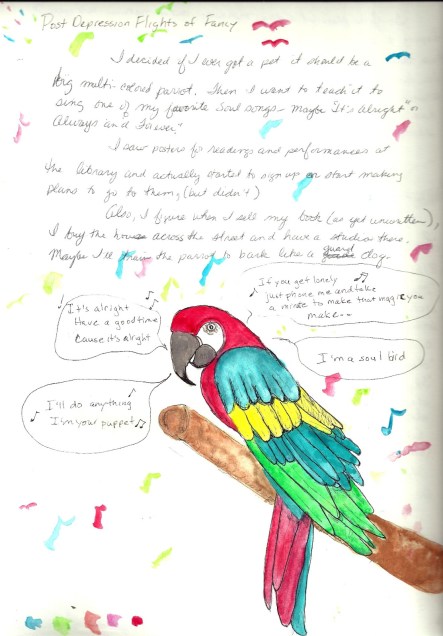 Post Depression Flights of Fancy
I decided if I ever got a pet it should be a
big multi-colored parrot. Then I want to teach it to
sing one of my favorite soul songs - maybe "It's alright" or
"Always and Forever."
I saw posters for readings and performances at
the library and actually started to sign up or start making
plans to go to them, (but didn't)
Also, I figure when I sell my book (as yet unwritten),
I buy the house across the street and have a studio there.
Maybe I'll train the parrot to bark like a guard dog.
If you get lonely
just phone me and take
a minute to make that magic you
make...
It's alright
Have a good time
Cause it's alright
I'm a soul bird
I'll do anything
I'm your puppet